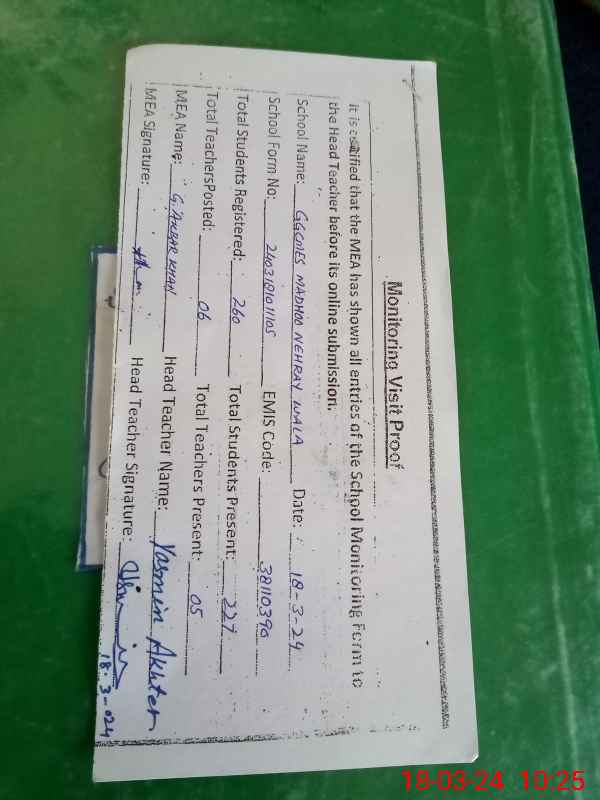 Monitoring Visit Proof
It is certified that the MEA has shown all entries of the School Monitoring Form to
the Head Teacher before its online submission.
School Name: GGCMES MADHOO NEHRAY WALA Date: 18-3-24
School Form No: 2403181011105 EMIS Code: 38110390
Total Students Registered: 260 Total Students Present: 227
Total TeachersPosted: 06 Total Teachers Present: 05
MEA Name: G. AKBAR KHAN Head Teacher Name: Yasmin Akhter
MEA Signature: Head Teacher Signature:
18-3-024
18-03-24 10:25